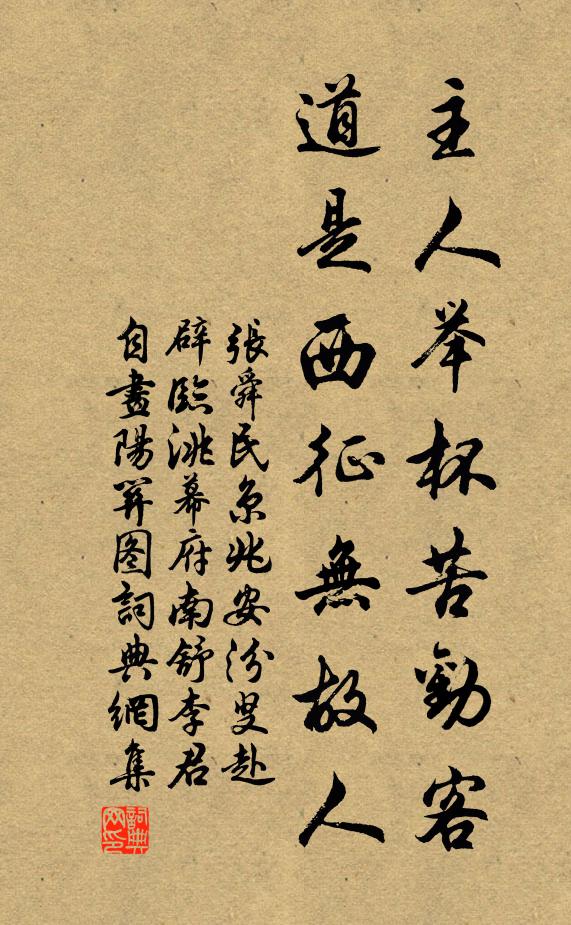 主人举杯苦勸客
道是西征無故人
張舜民京兆安汾叟赴
辟臨洮幕府南舒李君
自畫陽關图詞典網集
詞典网印